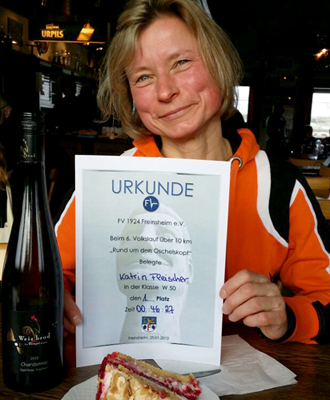 URPILS
URKUNDE
FV
FV 1924 Freinsheim e.V.
Beim 6. Volkslauf über 10 km
"Rund um den Oschelskopf"
Belegte
Katrin Fleischer
in der Klasse W 50
den 1. Platz
Zeit 00:46:27
Weisbrod
Chardonnay